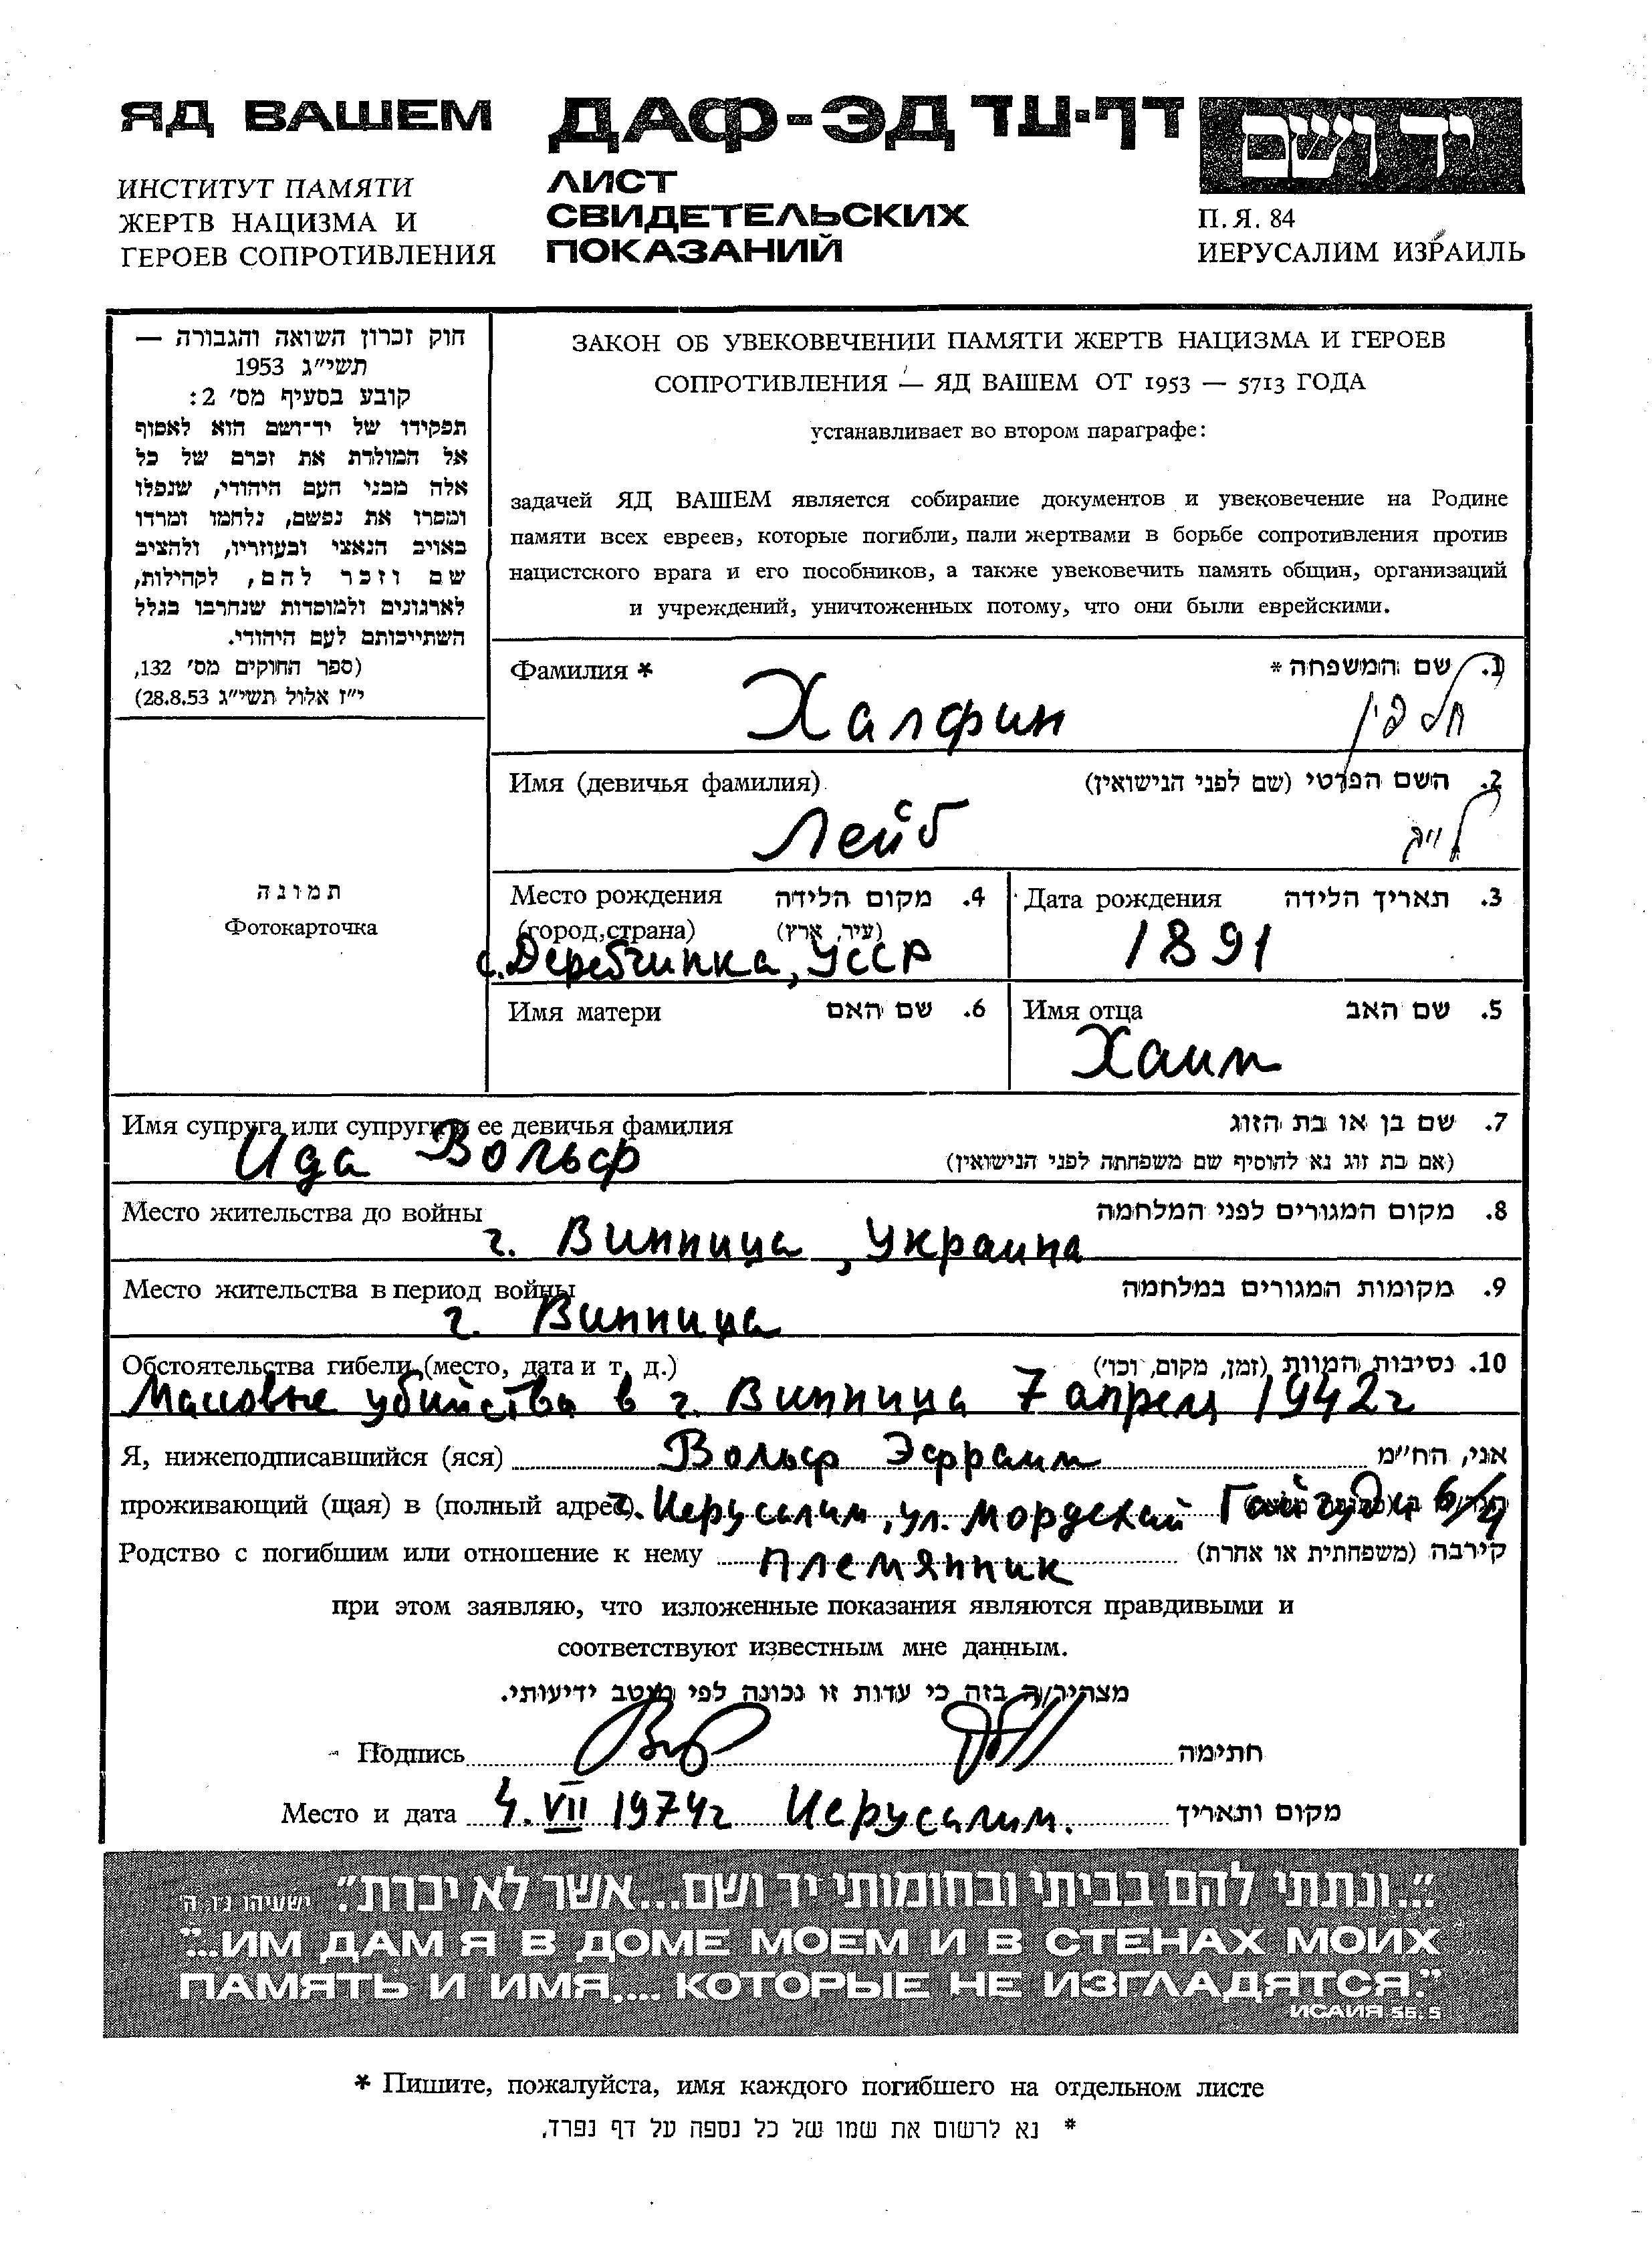 ЯД ВАШЕМ
ИНСТИТУТ ПАМЯТИ
ЖЕРТВ НАЦИЗМА И
ГЕРОЕВ СОПРОТИВЛЕНИЯ
ДАФ-ЭД דף-עד
ЛИСТ
СВИДЕТЕЛЬСКИХ
ПОКАЗАНИЙ
יד ושם
П. Я. 84
ИЕРУСАЛИМ ИЗРАИЛЬ
חוק זכרון השואה והגבורה —
תשי״ג 1953
קובע בסעיף מס׳ 2:
תפקידו של יד־ושם הוא לאסוף
אל המולדת את זכרם של כל
אלה מבני העם היהודי, שנפלו
ומסרו את נפשם, נלחמו ומרדו
באויב הנאצי ובעוזריו, ולהציב
שם וזכר להם, לקהילות,
לארגונים ולמוסדות שנחרבו בגלל
השתייכותם לעם היהודי.
(ספר החוקים מס׳ 132,
י״ז אלול תשי״ג 28.8.53)
ЗАКОН ОБ УВЕКОВЕЧЕНИИ ПАМЯТИ ЖЕРТВ НАЦИЗМА И ГЕРОЕВ
СОПРОТИВЛЕНИЯ — ЯД ВАШЕМ ОТ 1953 — 5713 ГОДА
устанавливает во втором параграфе:
задачей ЯД ВАШЕМ является собирание документов и увековечение на Родине
памяти всех евреев, которые погибли, пали жертвами в борьбе сопротивления против
нацистского врага и его пособников, а также увековечить память общин, организаций
и учреждений, уничтоженных потому, что они были еврейскими.
Фамилия * 1. שם המשפחה *
Халфин חלפין
Имя (девичья фамилия) 2. השם הפרטי (שם לפני הנישואין)
Лейб
תמונה
Фотокарточка
Место рождения 4. מקום הלידה
(город,страна) (עיר, ארץ)
с. Деребчинка, УССР
Дата рождения 3. תאריך הלידה
1891
Имя матери 6. שם האם
Имя отца 5. שם האב
Хаим
Имя супруга или супруги и ее девичья фамилия 7. שם בן או בת הזוג
(אם בת זוג נא להוסיף שם משפחתה לפני הנישואין)
Ида Вольф
Место жительства до войны 8. מקום המגורים לפני המלחמה
г. Винница, Украина
Место жительства в период войны 9. מקומות המגורים במלחמה
г. Винница
Обстоятельства гибели (место, дата и т. д.) 10. נסיבות המוות (זמן, מקום, וכו׳)
Массовые убийства в г. Винница 7 апреля 1942 г
Я, нижеподписавшийся (яся) Вольф Эфраим אני, הח״מ
проживающий (щая) в (полный адрес) г. Иерусалим, ул. Мордехай 6/4
Родство с погибшим или отношение к нему Племянник קירבה (משפחתית או אחרת)
при этом заявляю, что изложенные показания являются правдивыми и
соответствуют известным мне данным.
מצהיר/ה בזה כי עדות זו נכונה לפי מיטב ידיעותי.
Подпись חתימה
Место и дата 4. VII 1974г Иерусалим. מקום ותאריך
״...ונתתי להם בביתי ובחומותי יד ושם...אשר לא יכרת״. ישעיהו נ״ו, ה׳
"...ИМ ДАМ Я В ДОМЕ МОЕМ И В СТЕНАХ МОИХ
ПАМЯТЬ И ИМЯ,... КОТОРЫЕ НЕ ИЗГЛАДЯТСЯ."
ИСАИЯ 56. 5
* Пишите, пожалуйста, имя каждого погибшего на отдельном листе
* נא לרשום את שמו של כל נספה על דף נפרד.